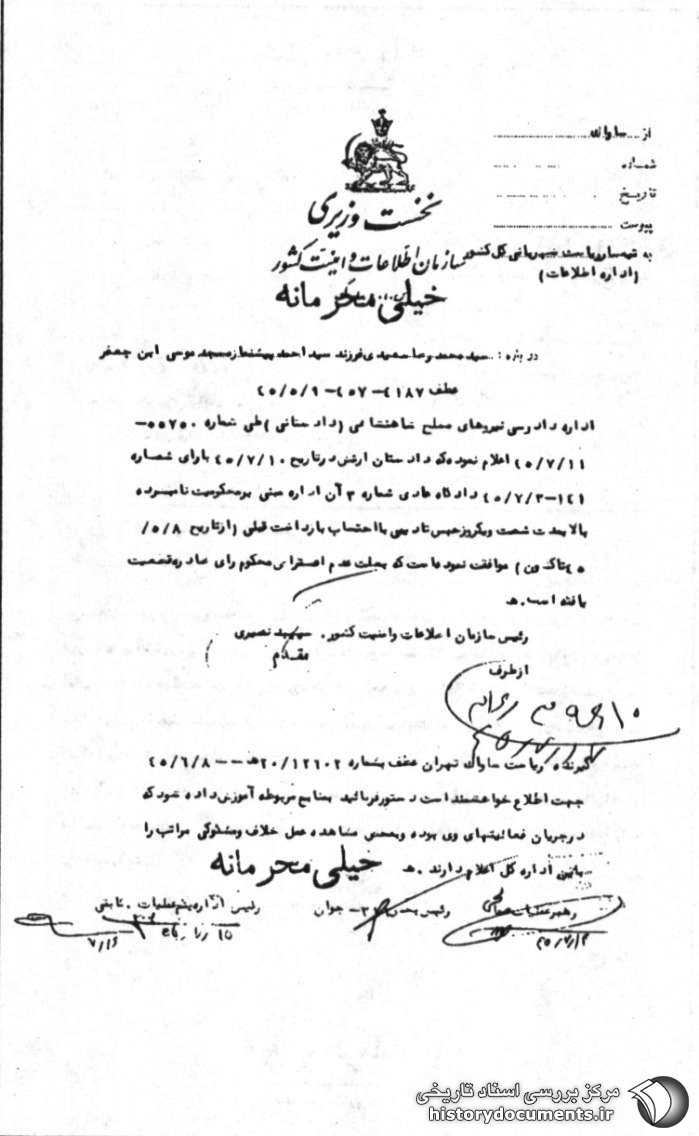 از ... ساواک
شماره
تاریخ
پیوست
به تیمسار ریاست شهربانی کل کشور
(اداره اطلاعات)
نخست وزیری
سازمان اطلاعات و امنیت کشور
خیلی محرمانه
درباره : سید محمدرضا سعیدی فرزند سید احمد پیشنماز مسجد موسی ابن جعفر
عطف ۴۱۸۷-۴۵۷-۴۵/۵/۹
اداره دادرسی نیروهای مسلح شاهنشاهی (دادستانی) طی شماره ۵۵۷۵۰-
۴۵/۷/۱۱ اعلام نموده که دادستان ارتش در تاریخ ۴۵/۷/۱۰ با رای شماره
۱۴۱-۴۵/۷/۳ دادگاه عادی شماره ۳ آن اداره مبنی بر محکومیت نامبرده
بالا بمدت شصت و یکروز حبس تادیبی با احتساب بازداشت قبلی (از تاریخ ۵/۸/
۴۵ تاکنون) موافقت نموده است که بعلت عدم اعتراض محکوم رای صادره قطعیت
یافته است. ه
رئیس سازمان اطلاعات و امنیت کشور. سپهبد نصیری
مقدم
از طرف
گیرنده ریاست ساواک تهران عطف بشماره ۲۰/۱۲۶۰۲ه‍ -- ۴۵/۶/۸
جهت اطلاع خواهشمند است دستور فرمائید بمنابع مربوطه آموزش داده شود که
در جریان فعالیتهای وی بوده و بمحض مشاهده عمل خلاف و مشکوکی مراتب را
باین اداره کل اعلام دارند. ه
خیلی محرمانه
رهبر عملیات
رئیس بخش ۳۲۱- جوان
رئیس اداره یکم عملیات. ثابتی
۴۵/۷/۱۴
۷/۱۶
مرکز بررسی اسناد تاریخی
historydocuments.ir